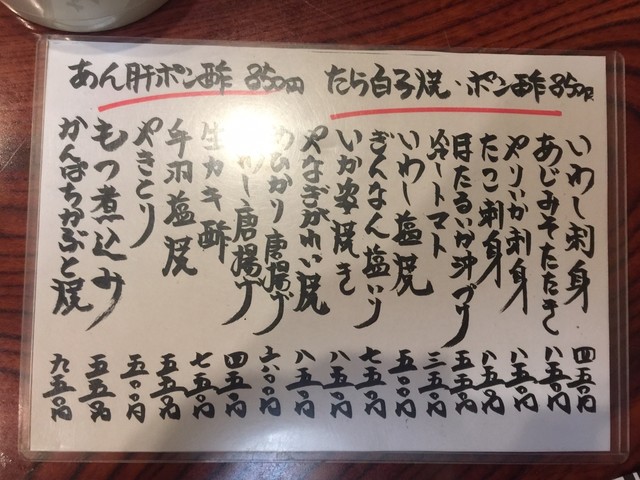 あん肝ポン酢 850円
たら白子焼・ポン酢 850円
いわし刺身 四五〇円
あじみそたたき 八五〇円
やりいか刺身 八五〇円
たこ刺身 八五〇円
ほたるいか沖づけ 五五〇円
冷しトマト 三五〇円
いわし塩焼 五〇〇円
ぎんなん塩いり 七五〇円
いか姿焼き 八五〇円
やなぎがれい焼 八五〇円
めひかり唐揚げ 六〇〇円
いわし唐揚げ 四五〇円
生カキ酢 七五〇円
手羽塩焼 五五〇円
やきとり 五〇〇円
もつ煮込み 五五〇円
かんぱちかぶと焼 九五〇円